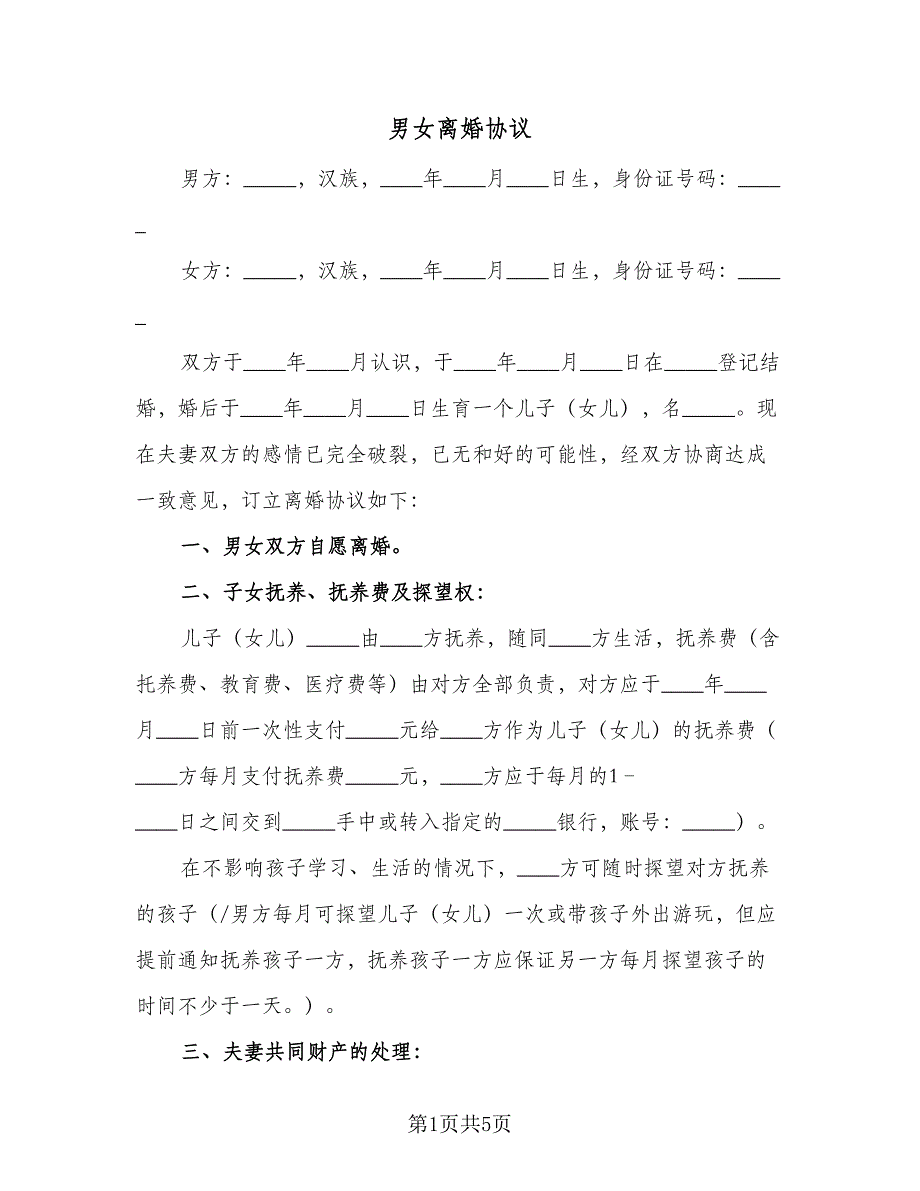 男女离婚协议
男方：_____，汉族，____年____月____日生，身份证号码：____
_
女方：_____，汉族，____年____月____日生，身份证号码：____
_
双方于____年____月认识，于____年____月____日在_____登记结
婚，婚后于____年____月____日生育一个儿子（女儿），名_____。现
在夫妻双方的感情已完全破裂，已无和好的可能性，经双方协商达成
一致意见，订立离婚协议如下：
一、男女双方自愿离婚。
二、子女抚养、抚养费及探望权：
儿子（女儿）_____由____方抚养，随同____方生活，抚养费（含
托养费、教育费、医疗费等）由对方全部负责，对方应于____年____
月____日前一次性支付_____元给____方作为儿子（女儿）的抚养费（
____方每月支付抚养费_____元，____方应于每月的1-
____日之间交到_____手中或转入指定的_____银行，账号：_____）。
在不影响孩子学习、生活的情况下，____方可随时探望对方抚养
的孩子（/男方每月可探望儿子（女儿）一次或带孩子外出游玩，但应
提前通知抚养孩子一方，抚养孩子一方应保证另一方每月探望孩子的
时间不少于一天。）。
三、夫妻共同财产的处理：
第1页共5页